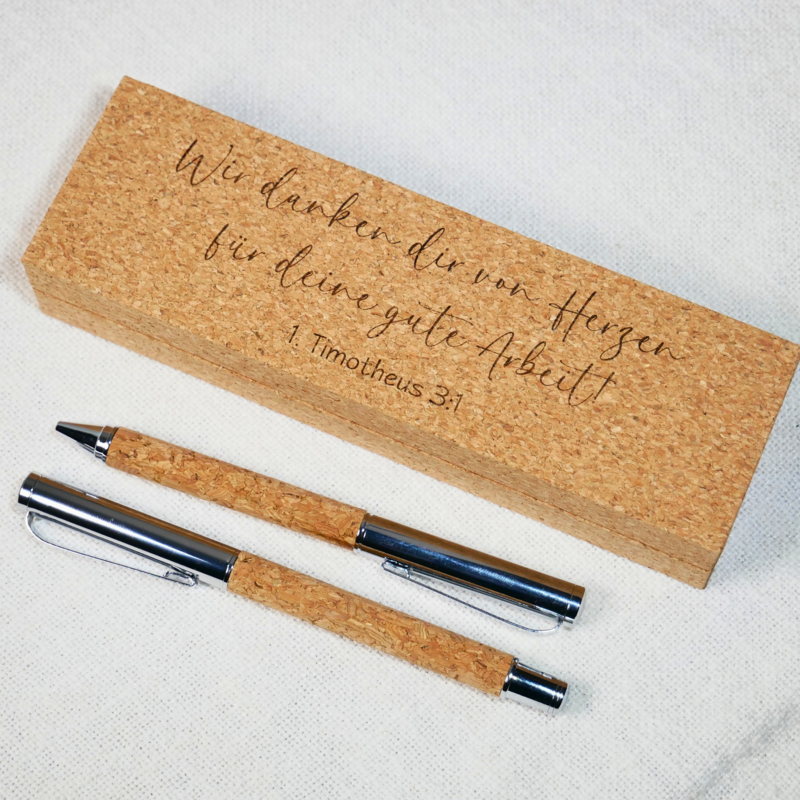 Wir danken dir von Herzen
für deine gute Arbeit!
1. Timotheus 3:1